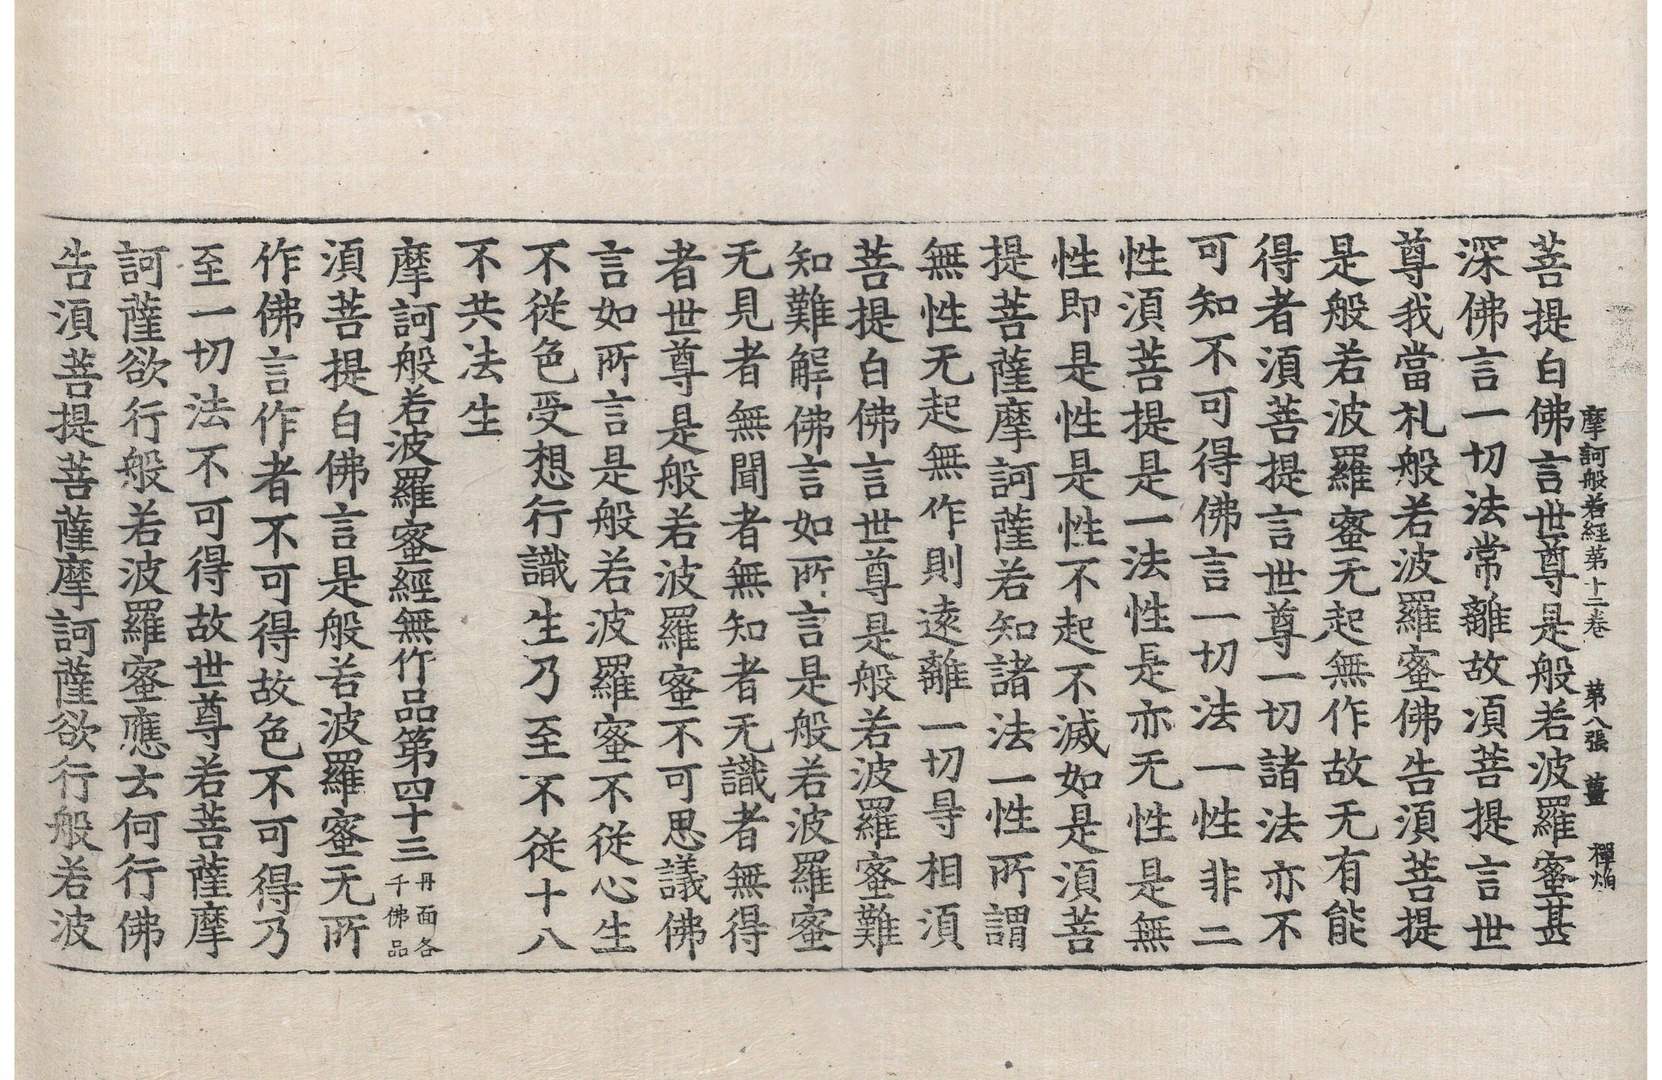 摩訶般若經第十二卷 第八張 薑 禪焰
菩提白佛言世尊是般若波羅蜜甚
深佛言一切法常離故湏菩提言世
尊我當札般若波羅蜜佛告湏菩提
是般若波羅蜜无起無作故无有能
得者湏菩提言世尊一切諸法亦不
可知不可得佛言一切法一性非二
性湏菩提是一法性是亦无性是無
性即是性是性不起不滅如是湏菩
提菩薩摩訶薩若知諸法一性所謂
無性无起無作則遠離一切㝵相湏
菩提白佛言世尊是般若波羅蜜難
知難解佛言如所言是般若波羅蜜
无見者無聞者無知者无識者無得
者世尊是般若波羅蜜不可思議佛
言如所言是般若波羅蜜不従心生
不従色受想行識生乃至不従十八
不共法生
摩訶般若波羅蜜經無作品第四十三 丹面各千佛品
湏菩提白佛言是般若波羅蜜无所
作佛言作者不可得故色不可得乃
至一切法不可得故世尊若菩薩摩
訶薩欲行般若波羅蜜應云何行佛
告湏菩提菩薩摩訶薩欲行般若波